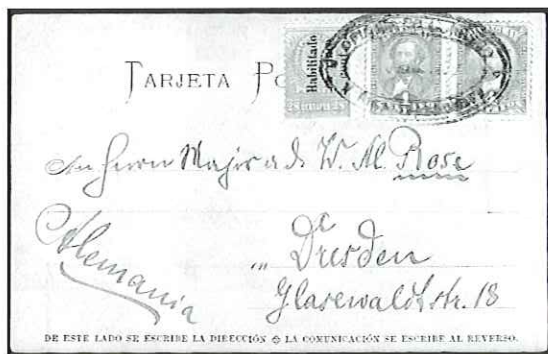 TARJETA PO
Habilitado
An Herrn Major a. D. W. Al. Rose
Alemania
in Dresden
Glasewaldtstr. 18
DE ESTE LADO SE ESCRIBE LA DIRECCIÓN ✥ LA COMUNICACIÓN SE ESCRIBE AL REVERSO.